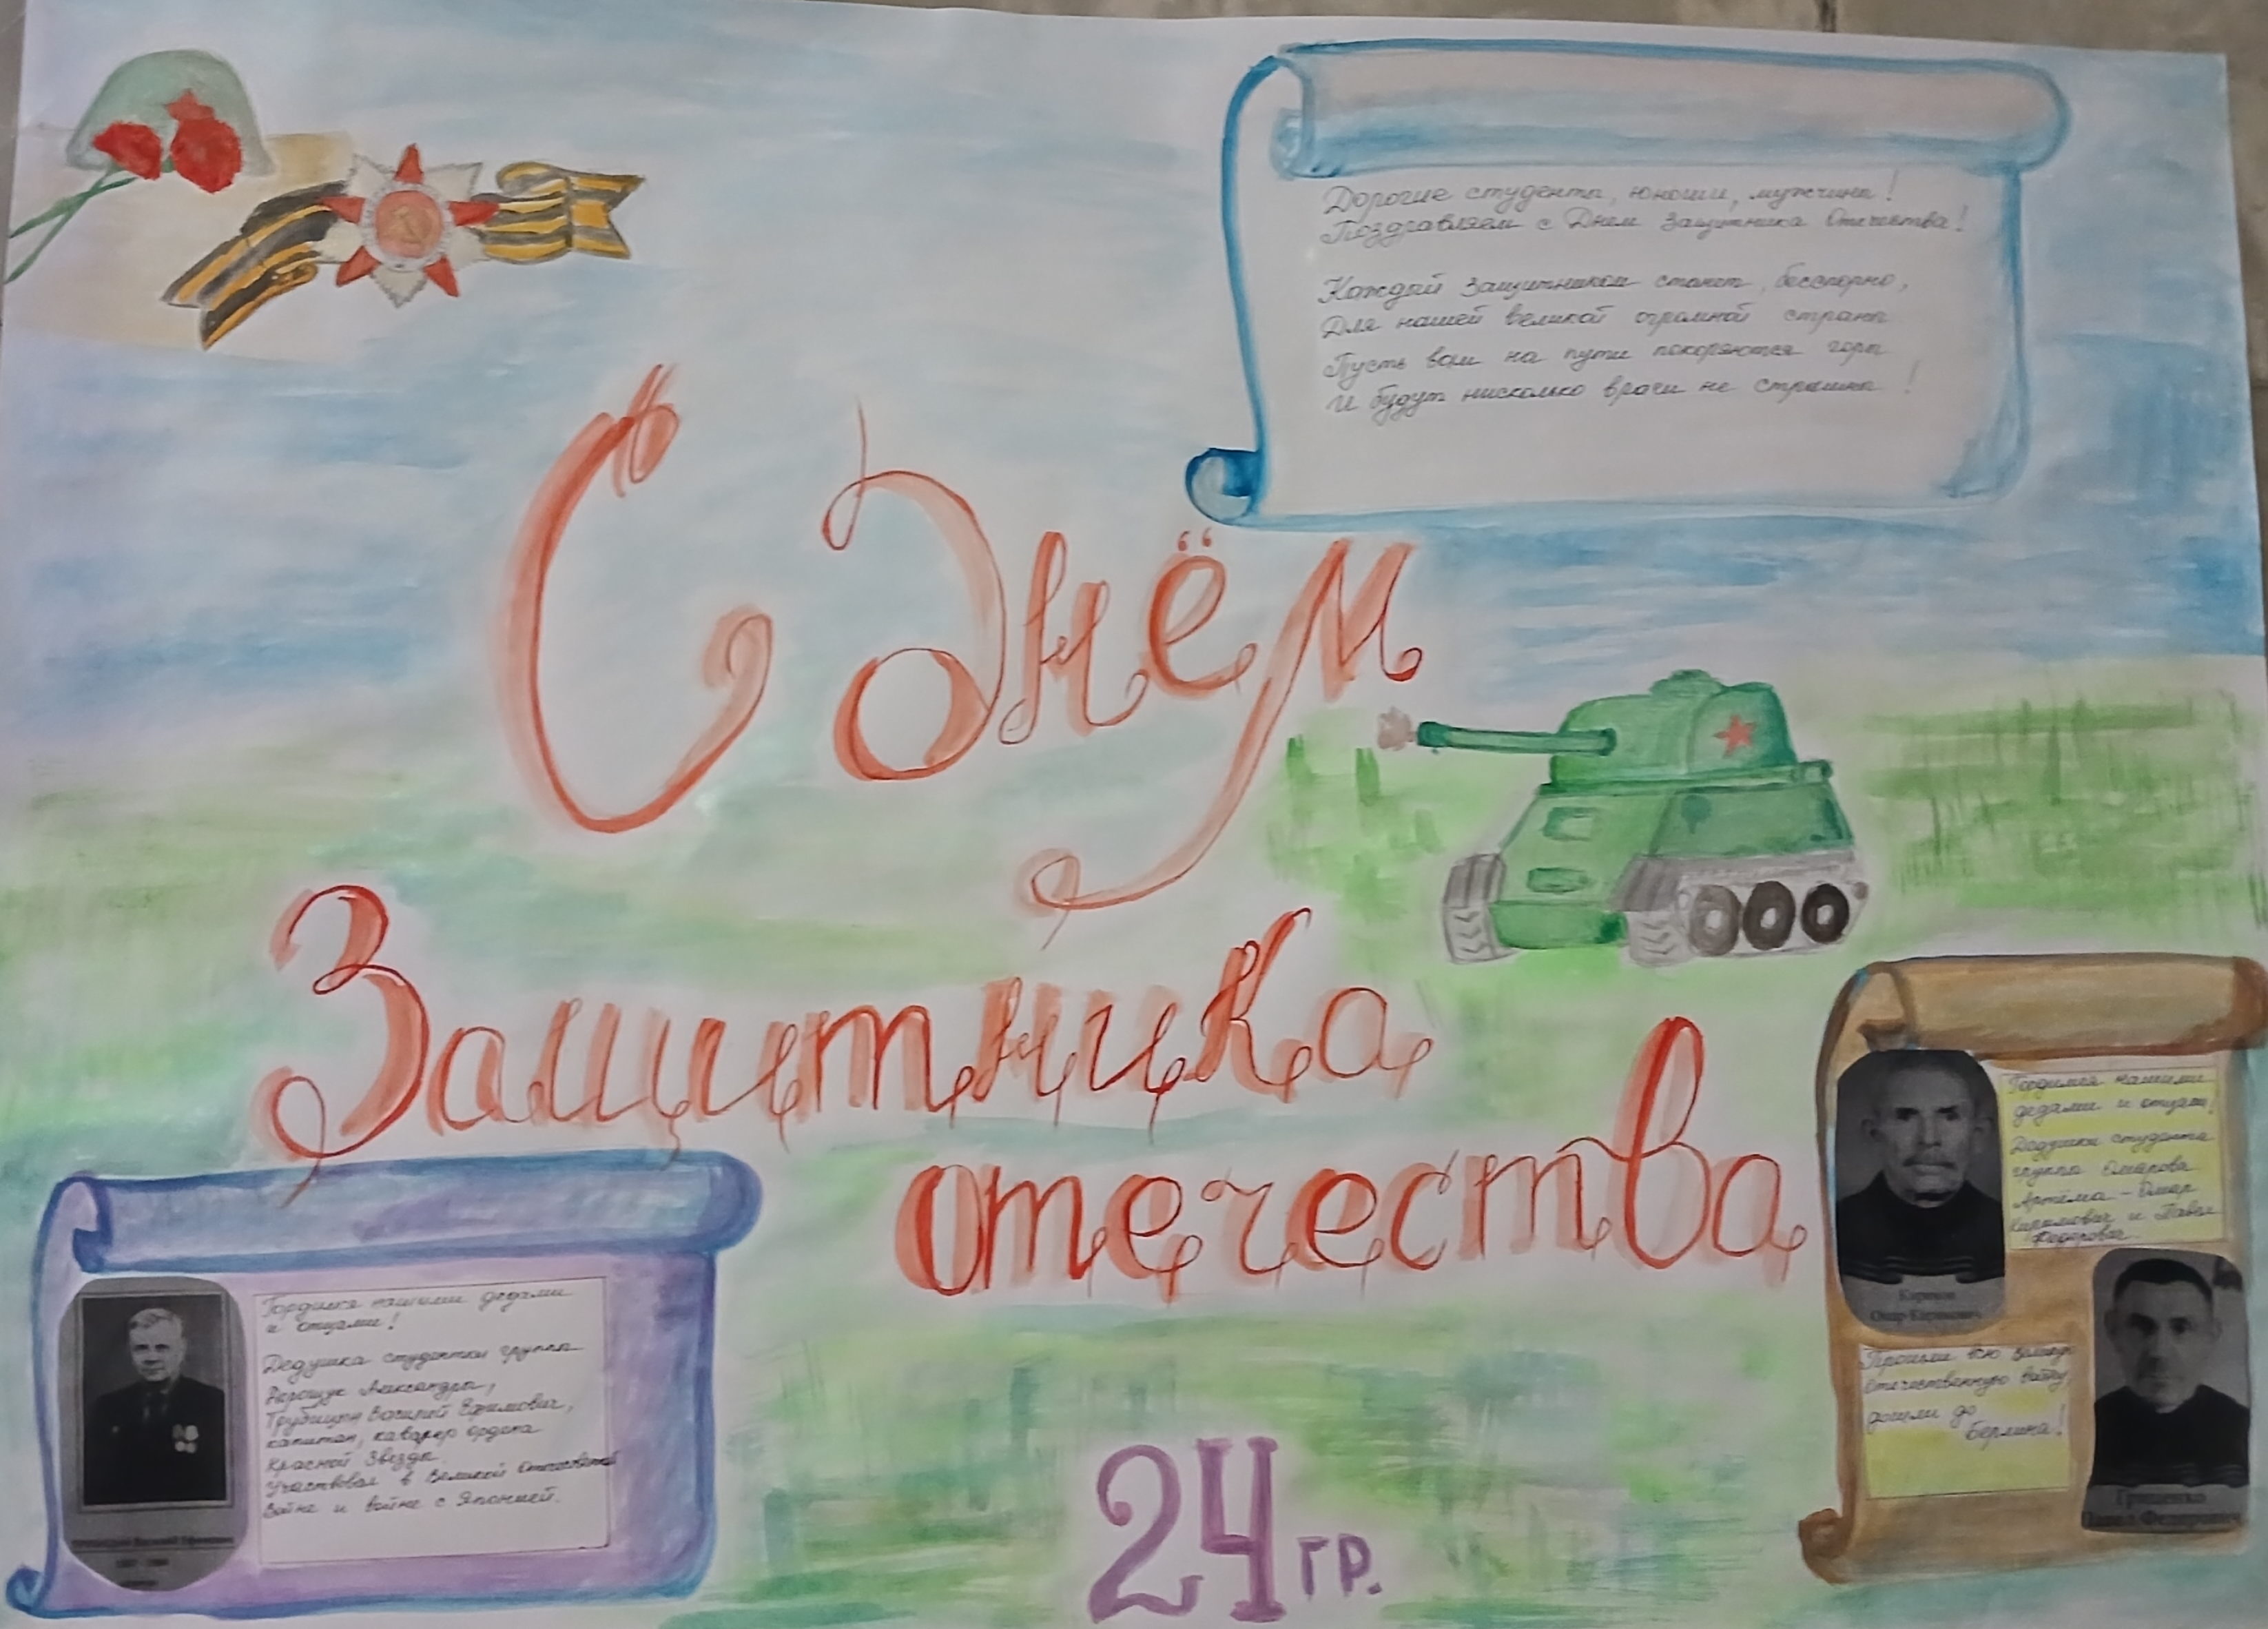 Дорогие студенты, юноши, мужчины!
Поздравляем с Днём Защитника Отечества!
Каждый защитником станет, бесспорно,
Для нашей великой огромной страны
Пусть вам на пути покоряются горы
И будут нисколько враги не страшны!
С Днём
Защитника
отечества
Гордимся нашими дедами
и отцами!
Дедушка студентки группы
Александры,
Василий Ефимович,
капитан, кавалер ордена
Красной Звезды.
Участвовал в Великой Отечественной
войне и войне с Японией.
Василий Ефимович
Гордимся нашими
дедами и отцами!
Дедушки студента
группы Омарова
Артёма - Омар
Каримович и Павел
Федорович.
Каримов
Омар Каримович
Прошли всю Великую
Отечественную войну,
дошли до
Берлина!
Гриценко
Павел Федорович
24 гр.